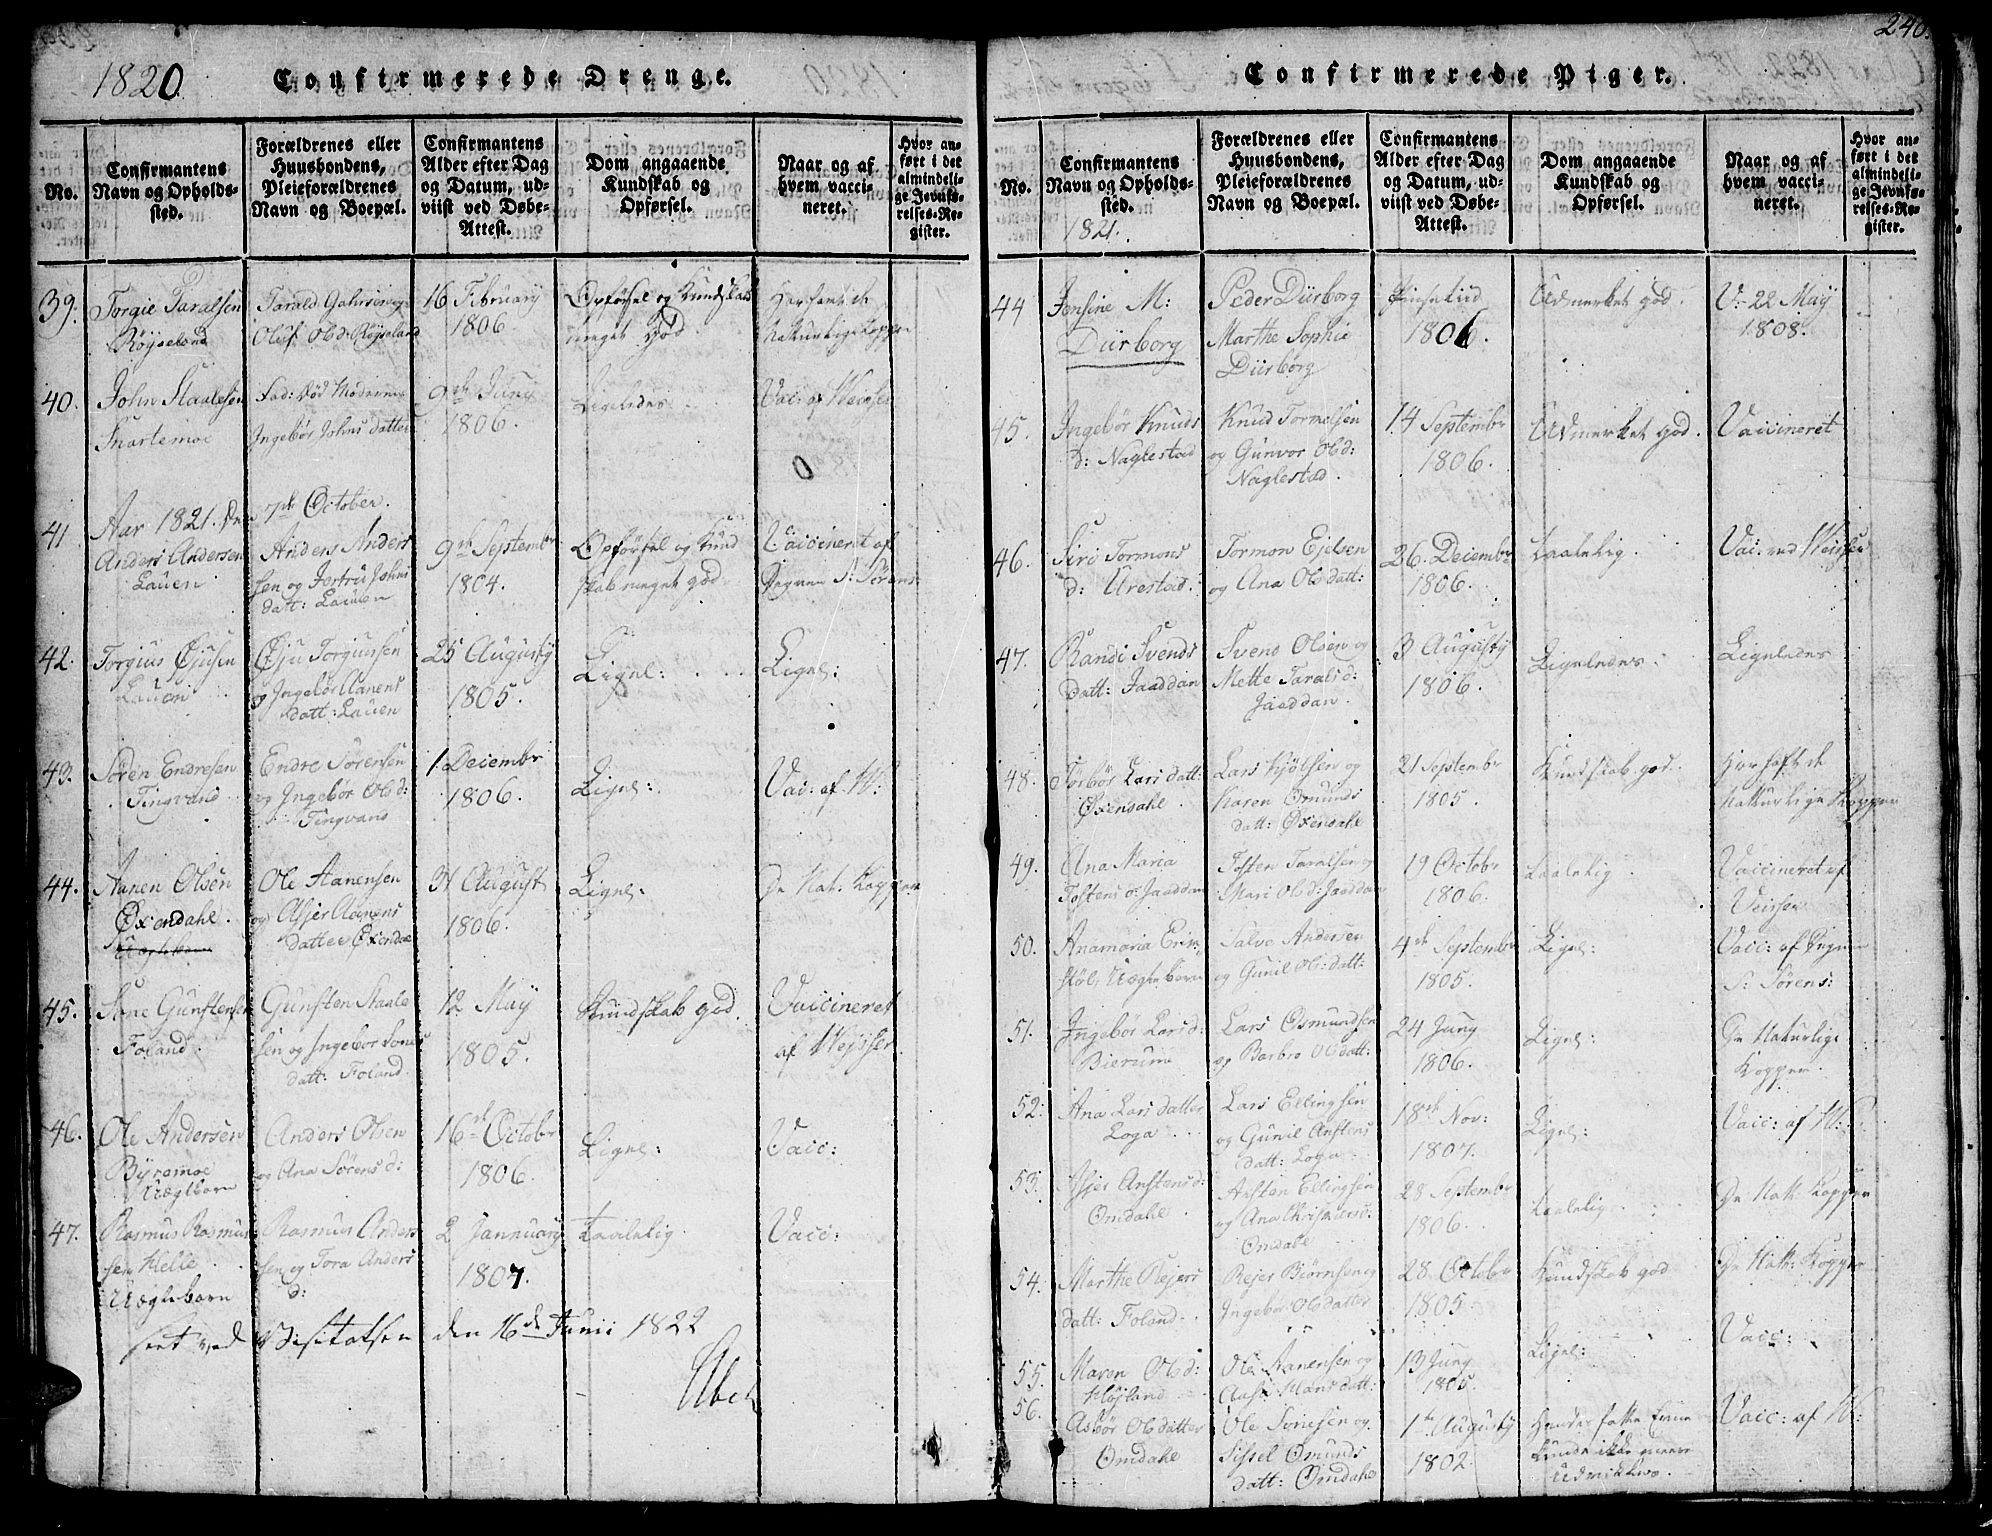 240.
1820
Confirmerede Drenge.
No.
Confirmantens
Navn og Opholds-
sted.
Forældrenes eller
Huusbondens,
Pleieforældrenes
Navn og Boepæl.
Confirmantens
Alder efter Dag
og Datum, ud-
viist ved Døbe-
Attest.
Dom angaaende
Kundskab og
Opførsel.
Naar og af
hvem vacci-
neret.
Hvor an-
ført i det
almindeli-
ge Jevnfø-
relses-Re-
gister.
39.
Torgie Taralsen
Röyseland
Tarald
Oluf Olsd: Röyseland
16 February
1806.
Opförsel og Kundskab
meget God
Har havt de
Naturlige Kopper
40.
John Staalesen
Snartemoe
Fad: död Moderen
Ingebör Johns datter
9de Juny
1806.
Ligeledes
Vac: af Weisser
0
Aar 1821. Den 7de October.
41
Anders Andersen
Lauen
Anders Anders
sen og Jertru Johns
datt: Lauen
9de Septembr
1804.
Opförsel og Kund
skab meget god
Vaccineret af
S: Sörens
42.
Torgius Öjusen
Lauen
Öju Torgiussen
og Ingebör Aanens
datt: Lauen
25 Augusty
1805.
Ligel:
Ligel:
43.
Sören Endresen
Tingvand
Endre Sörensen
og Ingebör Olsd:
Tingvand
1 Decembr
1806.
Ligel:
Vac: af W:
44.
Aanen Olsen
Öxendahl.
Ole Aanensen
og Asjer Aanens
datter Öxendal
31 August
1806.
Ligel:
De Nat. Kopper
45.
Sone Gunstensen
Foland.
Gunsten Staale
sen og Ingebor Sones
datt: Foland.
12 May
1805.
Kundskab god.
Vaccineret
af Weisser
46.
Ole Andersen
Byremoe
Uægtbarn
Anders Olsen
og Ana Sörensd:
16de Octobr
1806.
Ligel:
Vacc:
47.
Rasmus Rasmus
sen Helle
Uægtebarn
Rasmus Anders
sen og Tora Anders
d:
2 Jannuary
1807.
Taalelig
Vacc:
seet ved Visitatsen den 16de Junii 1822
Confirmerede Piger.
No.
Confirmantens
Navn og Opholds-
sted.
1821.
Forældrenes eller
Huusbondens,
Pleieforældrenes
Navn og Boepæl.
Confirmantens
Alder efter Dag
og Datum, ud-
viist ved Døbe-
Attest.
Dom angaaende
Kundskab og
Opførsel.
Naar og af
hvem vacci-
neret.
Hvor an-
ført i det
almindeli-
ge Jevnfø-
relses-Re-
gister.
44
Jensine M:
Dürborg
Peder Dürborg
Marthe Sophie
Dürborg
1806.
Udmerket god.
V= 22 May
1808.
45.
Ingebör Knuds
d: Naglestad
Knud Tormelsen
og Gunvor Olsd:
Naglestad.
14 Septembr
1806.
Udmerket god.
Vaccineret
46.
Siri Tormons
d: Urestad:
Tormon Ejelsen
og Ana Olsdatt:
26. Decembr
1806.
Taalelig.
Vac. ved Weisser
47.
Randi Svends
datt: Jaaddan
Svend Olsen og
Mette Taralsd:
Jaaddan.
3 Augusty
1806.
Ligeledes
Ligeledes
48.
Torbör Larsdatt:
Öxendahl.
Lars Kjölsen og
Karen Omunds
datt: Öxendahl
21 Septembr
1805.
Kundskab god.
Har haft de
Naturlige Kopper
49.
Ana Maria
Tostens d: Jaaddan
Tosten Taralsen og
Mari Olsd: Jaaddan
19 Octobr
1806.
Taalelig
Vaccineret af
Veisser
50.
Anamaria
Uægtebarn
Salve Andersen
og Gunil Olsdatt:
4de Septembr
1805.
Ligel:
Vacc: af
S: Sörens:
51.
Ingebör Larsd:
Bierum
Lars Osmundsen
og Barbro Olsdatt:
24 Juny
1806.
Ligel:
De Naturlige
Kopper.
52:
Ana Larsdatter
Loga
Lars Ellingsen
og Gunil Anstens
datt: Loga
18de Nov:
1807.
Ligel:
Vacc: af W:
53.
Asjer Anstensd:
Omdahl
Ansten Ellingsen
og Ana
Omdahl
28 Septembr
1806.
Taalelig
De Nat. Kopper
54.
Marthe Rejers
datt: Foland.
Rejer Biörnsen og
Ingebör Olsdatter
28. Octobr
1805.
Kundskab god
De Natt: Kopper
55.
Maren Olsd:
Höjland
Ole Aanensen og
Aase Hansdatt:
13 Juny
1805.
Ligel:
Vacc:
56.
Asbör Olsdatter
Omdahl
Ole Sonesen og
Sissel Omunds
datt: Omdahl
1ste Augusty
1802.
Hendes fatte Evne
kunde ikke meere
udvikkes.
Vacc: af W: